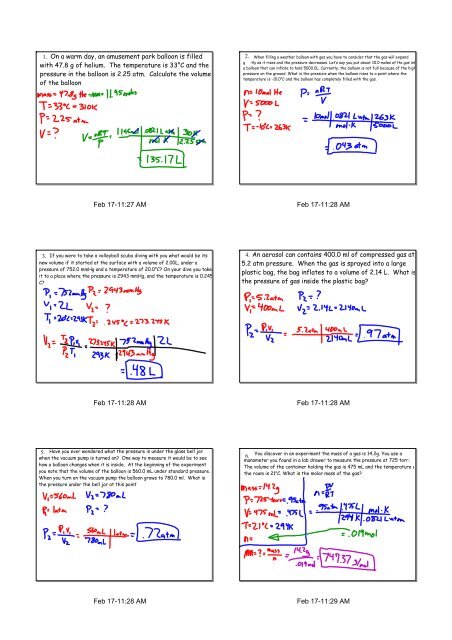 1. On a warm day, an amusement park balloon is filled
with 47.8 g of helium. The temperature is 33°C and the
pressure in the balloon is 2.25 atm. Calculate the volume
of the balloon
mass = 47.8g He
T=33°C = 310K
P=2.25 atm
V=?
V= nRT
P
= 135.17 L
Feb 17-11:27 AM
2. When filling a weather balloon with gas you have to consider that the gas will expand
as it rises and the pressure decreases. Let's say you put about 10.0 moles of
a balloon that can inflate to hold 5000.0L. Currently, the balloon is not full because of the high
pressure on the ground. What is the pressure when the balloon rises to a point where the
temperature is -10.0°C and the balloon has completely filled with the gas.
n= 10mol He
V= 5000 L
P= ?
T= -10°C = 263K
P= nRT
V
= 10mol .0821 L atm 263K
mol·K 5000L
= .043 atm
Feb 17-11:28 AM
3. If you were to take a volleyball scuba diving with you what would be its
new volume if it started at the surface with a volume of 2.00L, under a
pressure of 752.0 mmHg and a temperature of 20.0°C? On your dive you take
it to a place where the pressure is 2943 mmHg, and the temperature is 0.245
C?
P₁ = 752mmHg P₂ = 2943mmHg
V₁ = 2L V₂ = ?
T₁ = 20°C=293K T₂ = .245°C = 273.245K
V₂ = T₂P₁V₁ = 273.245K 752mmHg 2L
P₂T₁ 293K 2943mmHg
= .48 L
Feb 17-11:28 AM
4. An aerosol can contains 400.0 ml of compressed gas at
5.2 atm pressure. When the gas is sprayed into a large
plastic bag, the bag inflates to a volume of 2.14 L. What is
the pressure of gas inside the plastic bag?
P₁= 5.2atm P₂ = ?
V₁= 400mL V₂= 2.14L = 2140mL
P₂ = P₁V₁ = 5.2atm 400mL = .97 atm
V₂ 2140mL
Feb 17-11:28 AM
5. Have you ever wondered what the pressure is under the glass bell jar
when the vacuum pump is turned on? One way to measure it would be to see
how a balloon changes when it is inside. At the beginning of the experiment
you note that the volume of the balloon is 560.0 mL under standard pressure.
When you turn on the vacuum pump the balloon grows to 780.0 ml. What is
the pressure under the bell jar at this point
V₁=560mL V₂= 780mL
P₁= 1atm P₂ = ?
P₂ = P₁V₁ = 560mL 1atm = .72atm
V₂ 780mL
Feb 17-11:28 AM
6. You discover in an experiment the mass of a gas is 14.2g. You use a
manometer you found in a lab drawer to measure the pressure at 725 torr.
The volume of the container holding the gas is 475 mL and the temperature
the room is 21°C. What is the molar mass of the gas?
mass = 14.2g
P= 725 torr = .95atm
V= 475 mL = .475L
T= 21°C = 294K
n=
n= PV
RT
= .95atm .475L mol·K
294K .0821 L atm
= .019mol
MM= ? = mass = 14.2g = 747.37 g/mol
n .019mol
Feb 17-11:29 AM